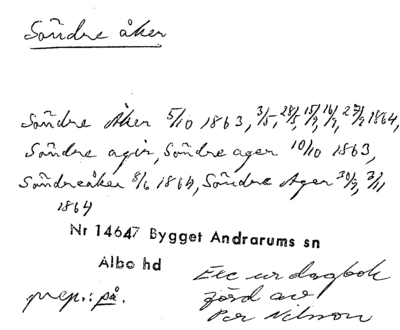 Söndre åker
Söndre Åker 5/10 1863, 3/5, 28/5, 15/7, 16/7, 27/2 1864,
Söndre agir, Söndre ager 10/10 1863,
Söndreåker 8/6 1864, Söndre Ager 30/7, 3/11
1864
Nr 14647 Bygget Andrarums sn
Albo hd
prep.: på.
Exc ur dagbok
förd av
Per Nilsson